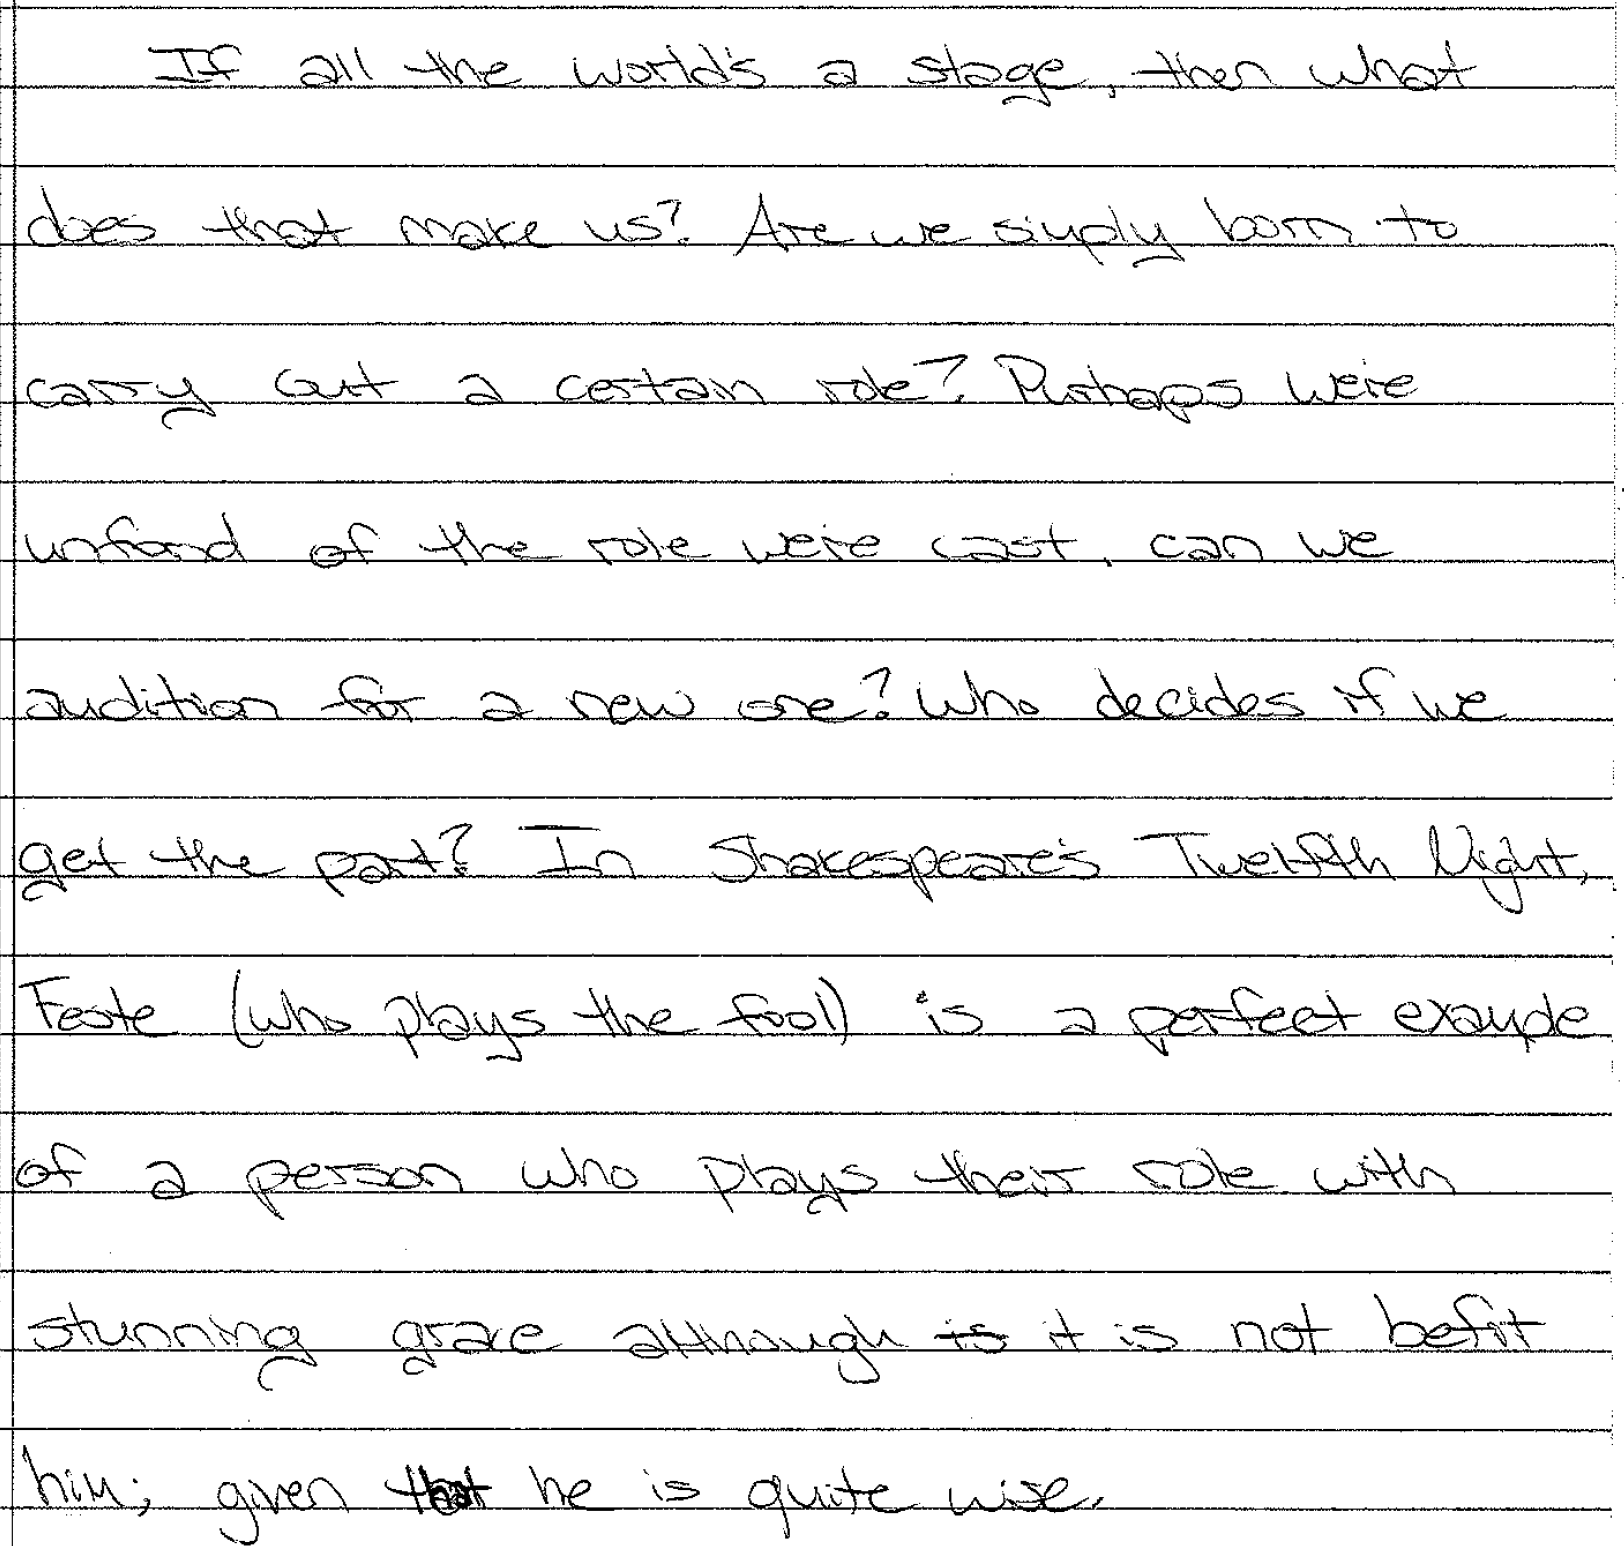 If all the world's a stage, then what
does that make us? Are we simply born to
carry out a certain role? Perhaps we're
unfond of the role we're cast, can we
audition for a new one? Who decides if we
get the part? In Shakespeare's Twelfth Night,
Feste (who plays the fool) is a perfect example
of a person who plays their role with
stunning grace although is it is not befit
him; given that he is quite wise.